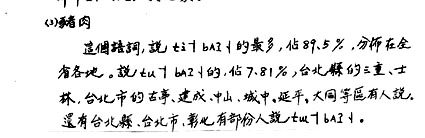 (3)豬肉
這個語詞,說 ti˧ bAʔ˧ 的最多,佔89.5%,分佈在全
省各地。說 tu˧ bAʔ˧ 的,佔7.81%,台北縣的三重、士
林,台北市的古亭、建成、中山、城中、延平、大同等區有人說.
還有台北縣、台北市、彰化有部份人說 tɯ˧ bAʔ˧.